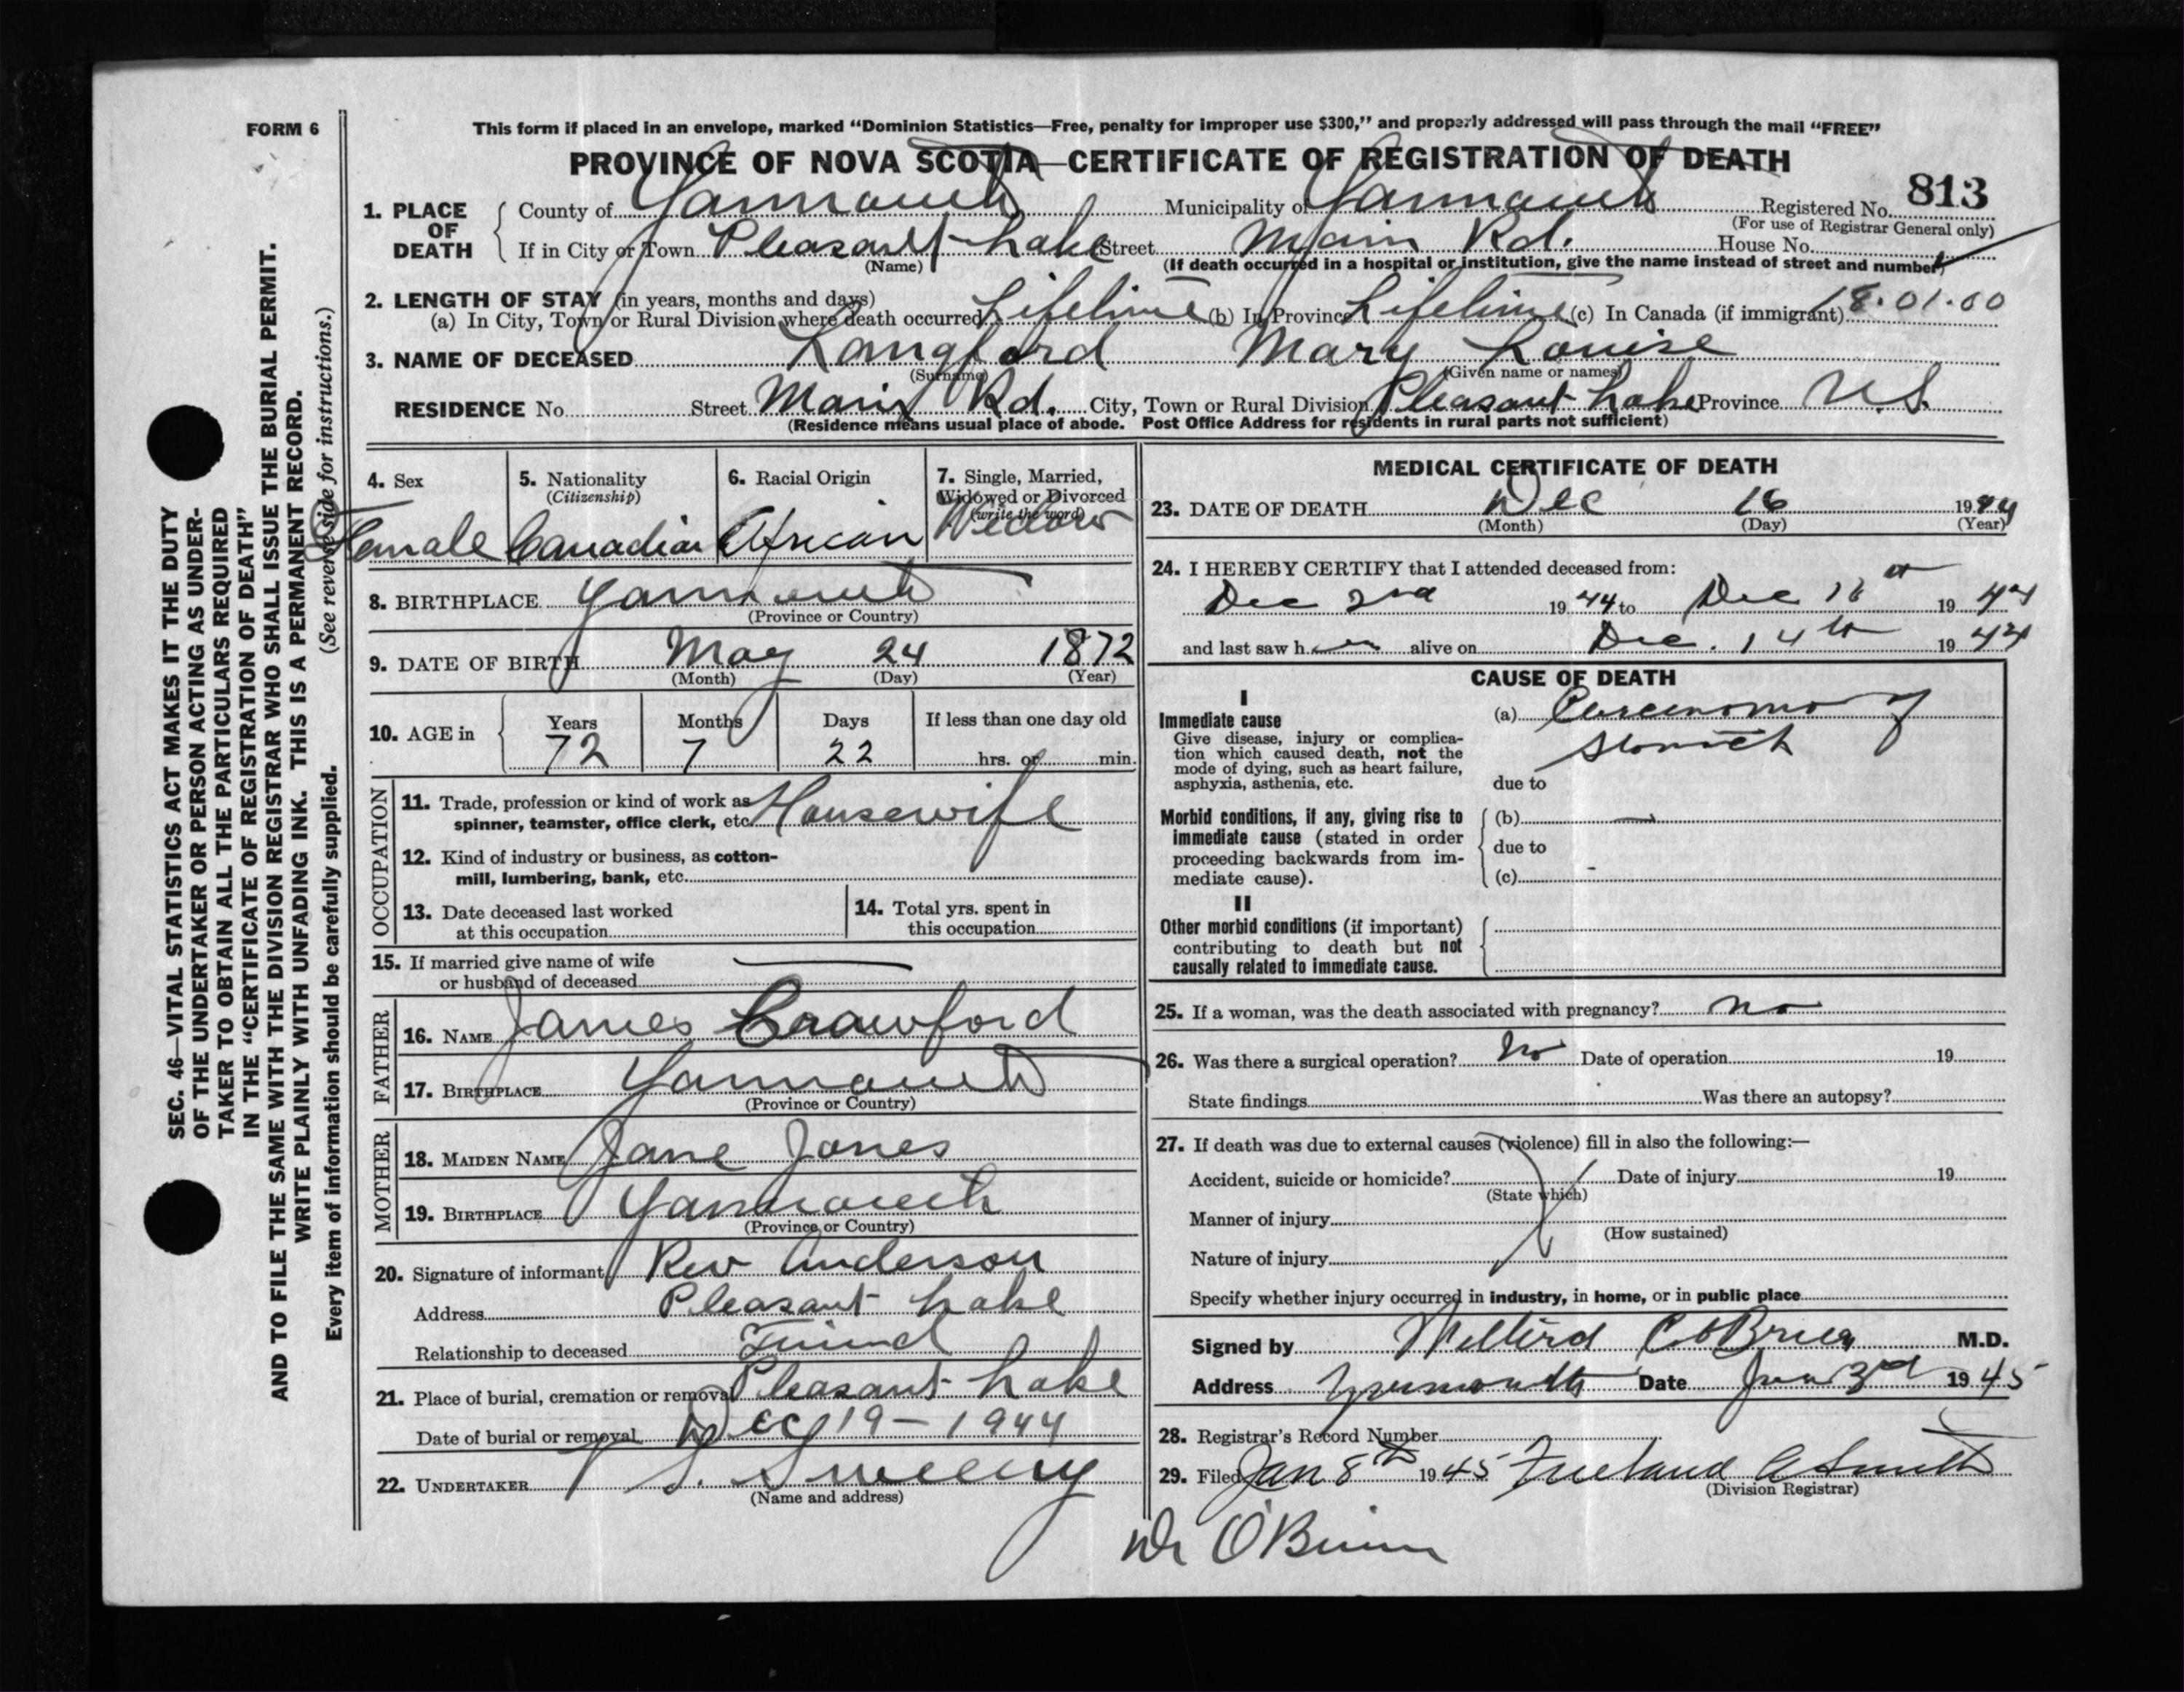 FORM 6
This form if placed in an envelope, marked “Dominion Statistics—Free, penalty for improper use $300,” and properly addressed will pass through the mail “FREE”
PROVINCE OF NOVA SCOTIA—CERTIFICATE OF REGISTRATION OF DEATH
1. PLACE OF DEATH County of Yarmouth Municipality of Yarmouth Registered No. 813
(For use of Registrar General only)
If in City or Town Pleasant Lake Street Main Rd. House No.
(Name) (If death occurred in a hospital or institution, give the name instead of street and number)
2. LENGTH OF STAY (in years, months and days)
(a) In City, Town or Rural Division where death occurred Lifetime (b) In Province Lifetime (c) In Canada (if immigrant) 18.01.00
3. NAME OF DECEASED Langford Mary Louise
(Surname) (Given name or names)
RESIDENCE No. Street Main Rd. City, Town or Rural Division Pleasant Lake Province N.S.
(Residence means usual place of abode. Post Office Address for residents in rural parts not sufficient)
4. Sex 5. Nationality (Citizenship) 6. Racial Origin 7. Single, Married, Widowed or Divorced (write the word)
Female Canadian African Widow
8. BIRTHPLACE Yarmouth
(Province or Country)
9. DATE OF BIRTH May 24 1872
(Month) (Day) (Year)
10. AGE in Years Months Days If less than one day old
72 7 22 hrs. or min.
OCCUPATION
11. Trade, profession or kind of work as Housewife
spinner, teamster, office clerk, etc.
12. Kind of industry or business, as cotton-
mill, lumbering, bank, etc.
13. Date deceased last worked
at this occupation
14. Total yrs. spent in
this occupation
15. If married give name of wife
or husband of deceased —
FATHER
16. NAME James Crawford
17. BIRTHPLACE Yarmouth
(Province or Country)
MOTHER
18. MAIDEN NAME Jane Jones
19. BIRTHPLACE Yarmouth
(Province or Country)
20. Signature of informant Rev Anderson
Address Pleasant Lake
Relationship to deceased Friend
21. Place of burial, cremation or removal Pleasant Lake
Date of burial or removal Dec 19 - 1944
22. UNDERTAKER Sweeny
(Name and address)
MEDICAL CERTIFICATE OF DEATH
23. DATE OF DEATH Dec 16 1944
(Month) (Day) (Year)
24. I HEREBY CERTIFY that I attended deceased from:
Dec 2nd 19 44 to Dec 16th 19 44
and last saw h er alive on Dec. 14th 19 44
CAUSE OF DEATH
I
Immediate cause
Give disease, injury or complica-
tion which caused death, not the
mode of dying, such as heart failure,
asphyxia, asthenia, etc.
(a) Carcinoma of
stomach
due to
Morbid conditions, if any, giving rise to
immediate cause (stated in order
proceeding backwards from im-
mediate cause).
(b) —
due to
(c) -
II
Other morbid conditions (if important)
contributing to death but not
causally related to immediate cause.
25. If a woman, was the death associated with pregnancy? no
26. Was there a surgical operation? no Date of operation 19
State findings Was there an autopsy?
27. If death was due to external causes (violence) fill in also the following:—
Accident, suicide or homicide? Date of injury 19
(State which)
Manner of injury
(How sustained)
Nature of injury
Specify whether injury occurred in industry, in home, or in public place
Signed by C O'Brien M.D.
Address Yarmouth Date Jan 3rd 19 45
28. Registrar's Record Number
29. Filed Jan 8th 19 45 Freeland A Smith
(Division Registrar)
Dr O'Brien
SEC. 46—VITAL STATISTICS ACT MAKES IT THE DUTY
OF THE UNDERTAKER OR PERSON ACTING AS UNDER-
TAKER TO OBTAIN ALL THE PARTICULARS REQUIRED
IN THE “CERTIFICATE OF REGISTRATION OF DEATH”
AND TO FILE THE SAME WITH THE DIVISION REGISTRAR WHO SHALL ISSUE THE BURIAL PERMIT.
WRITE PLAINLY WITH UNFADING INK. THIS IS A PERMANENT RECORD.
Every item of information should be carefully supplied. (See reverse side for instructions.)